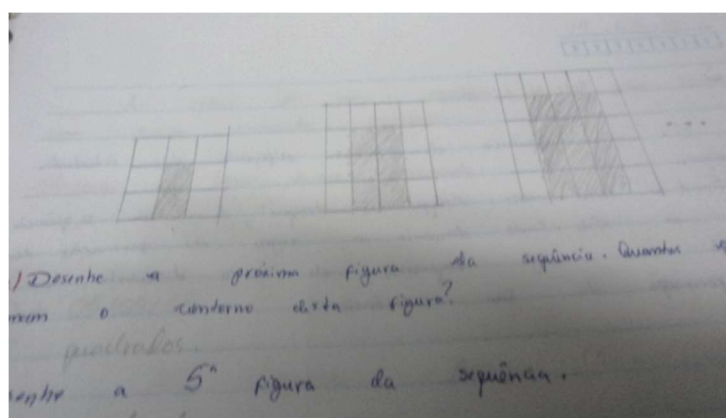 ...
) Desenhe a próxima figura da sequência. Quantos
o contorno desta figura?
quadrados.
a 5ª figura da sequência.